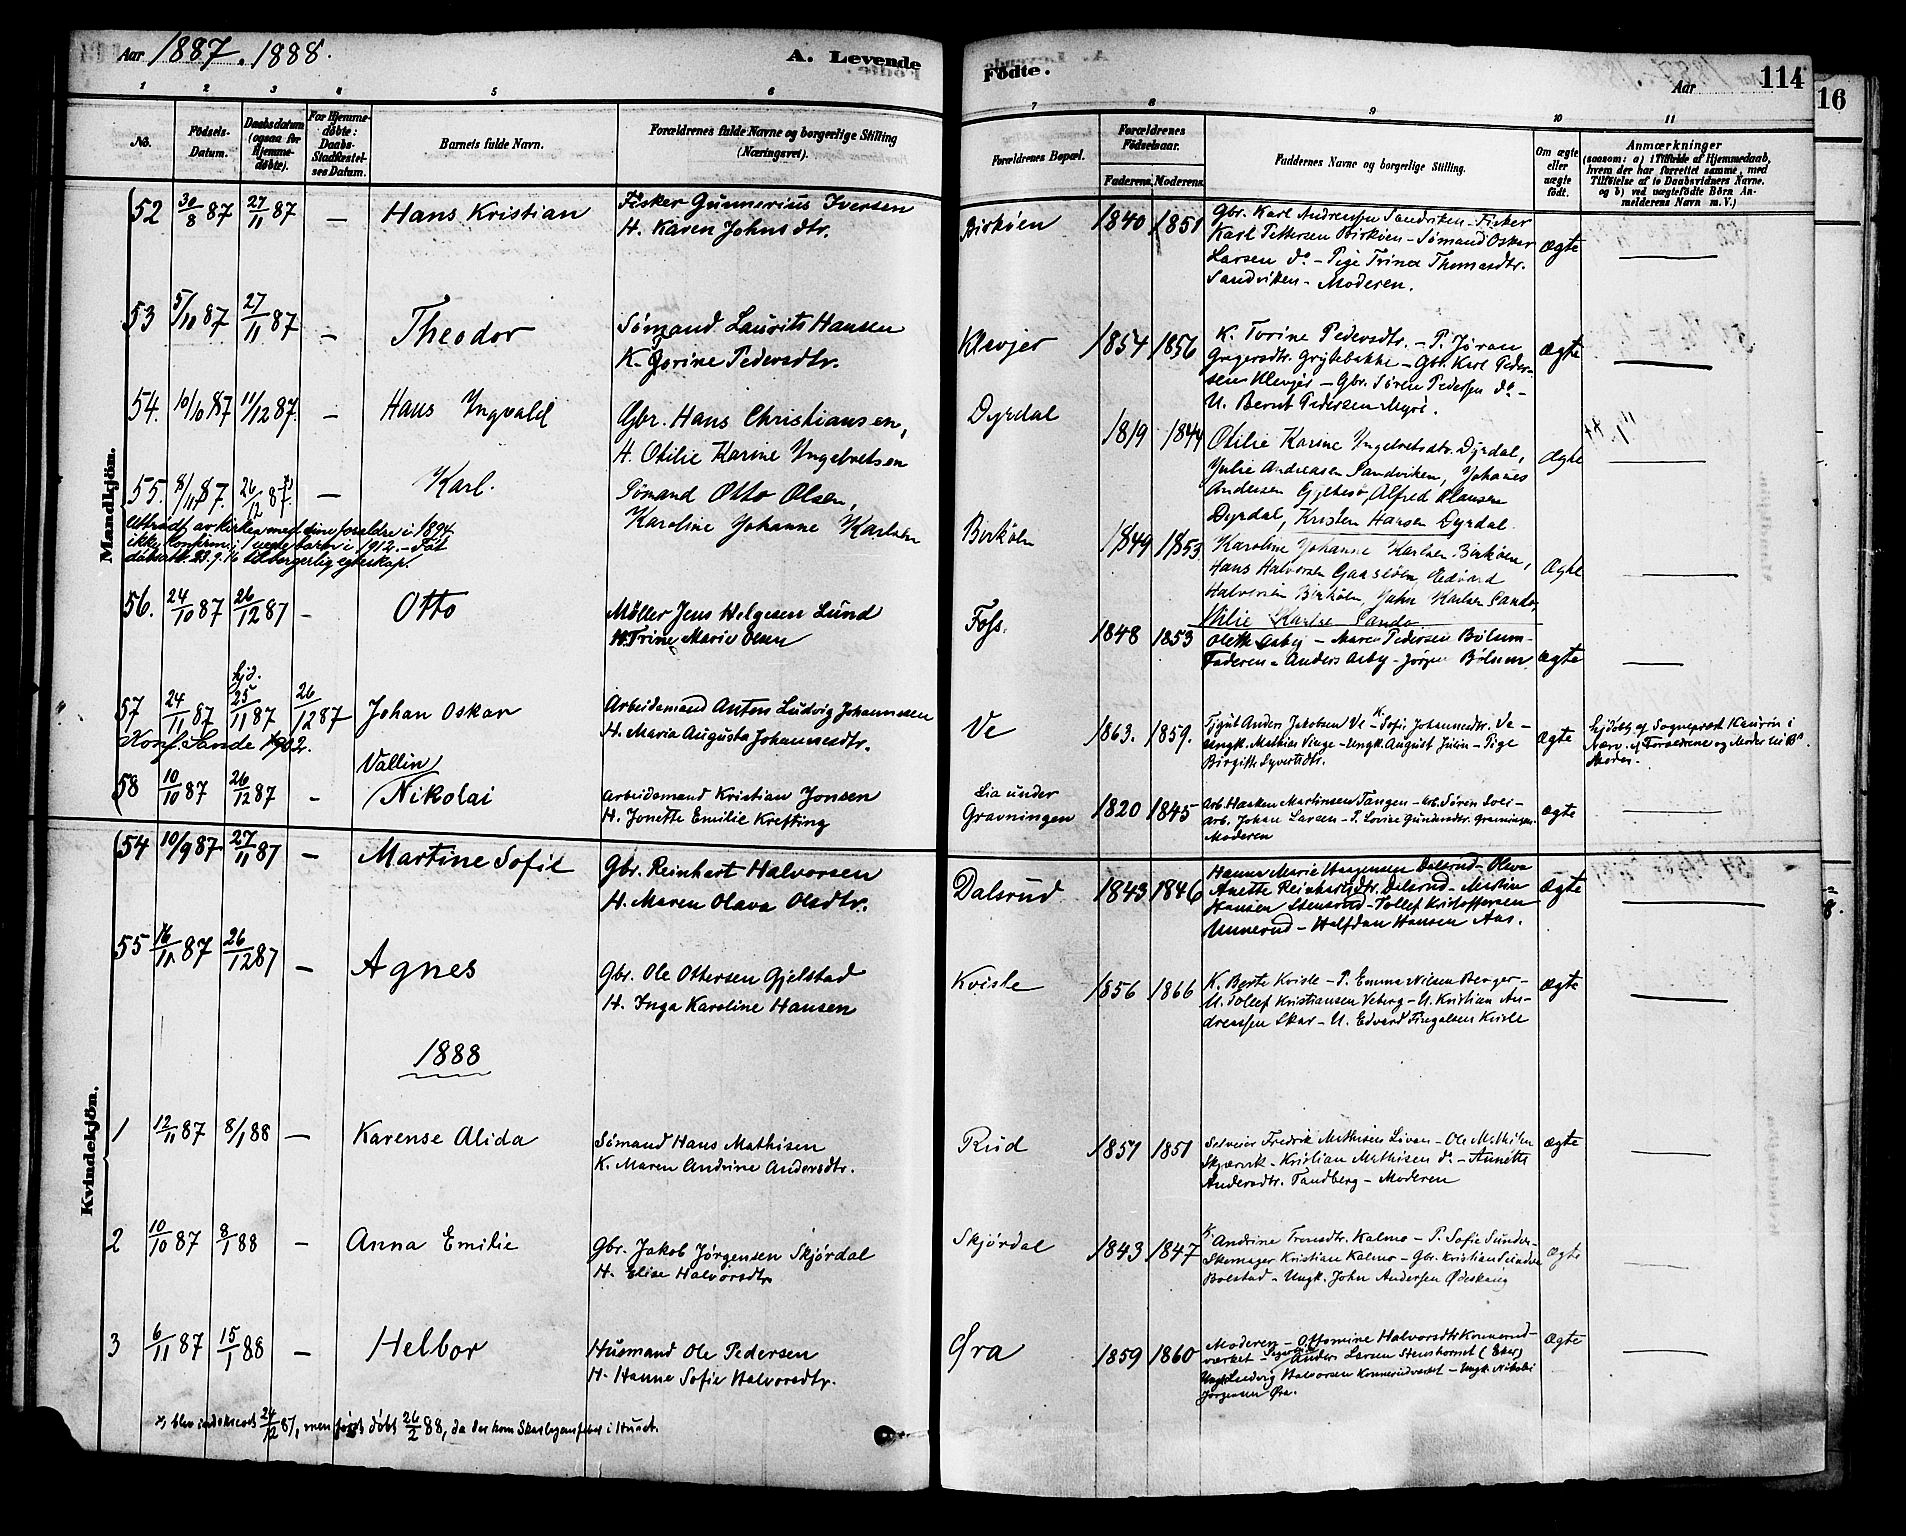 Aar 1887. 1888.
A. Levende
Födte.
Aar
114
16
1 2 3 4 5 6
7 8 9 10 11
No.
Födsels-Datum.
Daabsdatum (ogsaa for Hjemmedöbte).
For Hjemmedöbte: Daabs-Stadfæstelses Datum.
Barnets fulde Navn.
Forældrenes fulde Navne og borgerlige Stilling
(Næringsvei).
Forældrenes Bopæl.
Forældrenes Födselsaar.
Faderens. Moderens.
Faddernes Navne og borgerlige Stilling.
Om ægte eller uægte födt.
Anmærkninger
(saasom: a) i Tilfælde af Hjemmedaab,
hvem der har forrettet samme, med
Tilföielse af to Daabsvidners Navne.
og b) ved uægtefödte Börn Anmelderens Navn m. V.)
Mandkjön.
52 30/8 87 27/11 87 — Hans Kristian
Fisker Gunnerius Iversen
H. Karen Johnsdtr.
Birköen 1840 1851
Gbr. Karl Andreassen Sandviken - Fisker
Karl Pettersen Birköen - Sømand Oskar
Larsen do - Pige Trina Thomasdtr.
Sandviken - Moderen.
Ægte
53 5/10 87 27/11 87 — Theodor
Sømand Laurits Hansen
K. Gorine Pedersdtr.
Klevjer 1854 1856
K. Torine Pedersdtr. - P. Jøran
Gregersdtr. Grytebakke - Gbr. Karl Pedersen Klevjer - Gbr. Søren Pedersen do -
U. Bernt Pedersen Myre.
Ægte
54. 10/10 87 11/12 87. — Hans Ingvald
Gbr. Hans Christiansen,
H. Otilie Karine Ingebretsen
Dyrdal 1819 1844
Otilie Karine Ingebretsdtr. Dyrdal,
Julie Andreasen Sandviken, Johanes
Andersen Gjeltesø, Alfred Clausen
Dyrdal, Kristen Hansen Dyrdal
Ægte
55. 8/11 87. 26/12 87. x) — Karl.
Sømand Otto Olsen,
Karoline Johanne Karlsen
Uttraadt av kirken med sine forældre i 1894
ikke konfirm.
Birköen 1849 1853
Karoline Johanne Karlsen Birköen,
Hans Halvorsen Gaasöen, Edvard
Halvorsen Birköen, John Karlsen Sando,
Otilie Karlsen Sando
Ægte
56. 24/10 87 26/12 87 — Otto
Möller Jens Helgesen Lund
H. Trine Marie Olsen
Foss. 1848 1853
Olette Aaby - Maren Pedersen Bölum -
Faderen - Anders Aaby - Jörgen Bölum
Ægte
57 24/11 87 hjd. 25/11 87 26/12 87 Johan Oskar
Konf. Sande 1902.
Arbeidsmand Anton Ludvig Johannessen
H. Maria Augusta Johannesdtr.
Ve 1863. 1859.
Tjgut Anders Jakobsen Ve - K. Sofie Johannesdtr. Ve -
Ungk. Mathias Vinge - Ungk. August Julin - Pige
Birgitte Syvertsdtr.
Ægte
58 10/10 87 26/12 87 — Vallin Nikolai
Arbeidsmand Kristian Jonsen
H. Jonette Emilie Krefting
Lia under
Gravningen 1820 1845
Arb. Haaken Martinsen Tangen - Arb. Søren
Arb. Johan Larsen - P. Lovise Gundersdtr. Gravningen -
Moderen
Ægte
Kvindekjön.
54 10/9 87 27/11 87 — Martine Sofie
Gbr. Reinhart Halvorsen
H. Maren Olava Olsdtr.
Dalsrud 1843 1846
Hanna Marie Haagensen Dalsrud - Olava
Anette Reinhartsdtr. Dalsrud - Martin
Hansen Stensrud - Tollef Kristoffersen
Unnerud - Halfdan Hansen Aas.
Ægte
55 16/11 87 26/12 87 — Agnes
Gbr. Ole Ottersen Gjelstad
H. Inga Karoline Hansen
Kvisle 1856 1866
K. Berte Kvisle - P. Emma Nilsen Berger -
U. Tollef Kristiansen Veberg - U. Kristian Andreassen Skar - U. Edvard Tingelsen Kvisle
Ægte
1888
1 12/11 87 8/1 88 — Karense Alida
Sømand Hans Mathisen
K. Maren Andrine Andersdtr.
Rud 1857 1851
Selveier Fredrik Mathisen - Ole Mathisen
Skjærvik - Kristian Mathisen do - Annette
Andersdtr. Tandberg - Moderen
Ægte
2 10/10 87 8/1 88 — Anna Emilie
Gbr. Jakob Jørgensen Skjørdal
H. Elise Halvorsdtr.
Skjørdal 1843 1847
K. Andrine Kalmo - P. Sofie
Skomager Kristian Kalmo - Gbr. Kristian
Bolstad - Ungk. John Andersen Ødeskaug
Ægte
3 6/11 87 15/1 88 — Helbor
Husmand Ole Pedersen
H. Hanne Sofie Halvorsdtr.
Øra 1859 1860
Moderen - Ottomine Halvorsdtr. Konnerudværket - Anders Larsen (Eker)
Ungk. Ludvig Halvorsen Konnerudværket - Ungk. Nikolai
Jørgensen Øra.
Ægte
x) blev indskrevet 24/12 87, men først døbt 26/2 88, da der kom Skarlagensfeber i Huset.